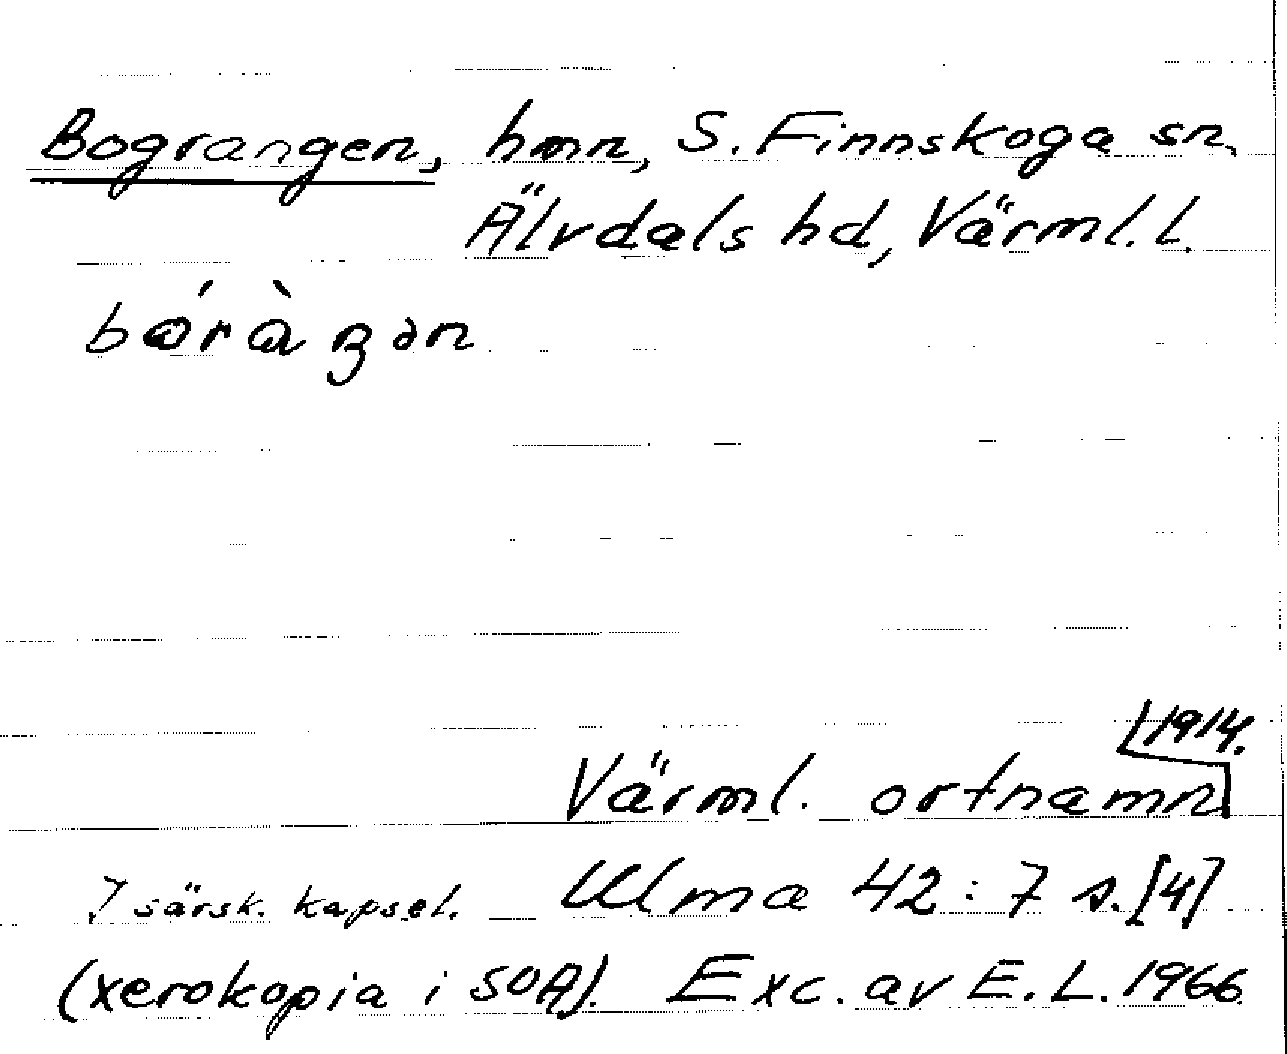 Bograngen, hmn, S. Finnskoga sn,
Älvdals hd, Värml. l.
1914.
Värml. ortnamn
I särsk. kapsel. Ulma 42:7 s. [4]
(xerokopia i SOA). Exc. av E. L. 1966